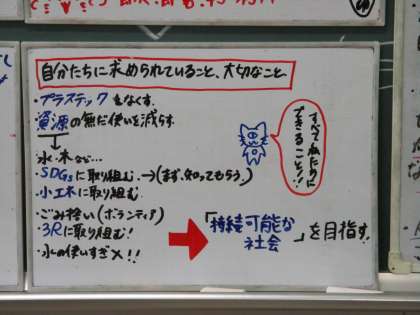 自分たちに求められていること、大切なこと
・プラスチックをなくす。
・資源の無だ使いを減らす。
水・木など…
・SDGsに取り組む。→(まず、知ってもらう。)
・小エネに取り組む。
・ごみ拾い(ボランティア)
・3Rに取り組む!
・水の使いすぎ×!!
すべて私たちにできること!!
「持続可能な社会」を目指す。